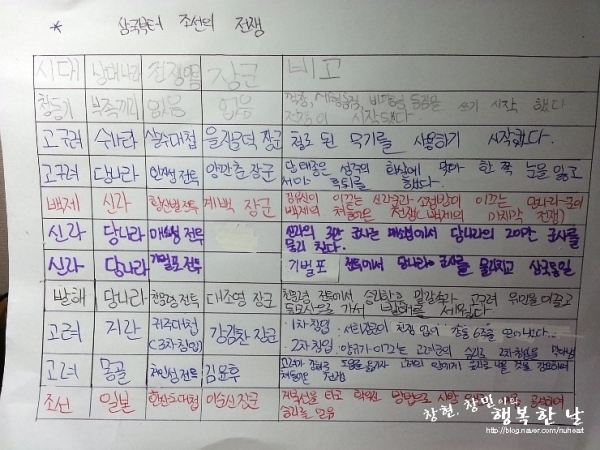 * 삼국부터 조선의 전쟁
시대 상대나라 전쟁이름 장군 비고
청동기 부족끼리 없음 없음 쓰기 시작 했다
전쟁이 시작됐다
고구려 수나라 살수대첩 을지문덕 장군 철로 된 무기를 사용하기 시작했다.
고구려 당나라 안시성 전투 양만춘 장군 당태종은 성주의 화살에 맞아 한 쪽 눈을 잃고
했다.
백제 신라 황산벌 전투 계백 장군 김유신이 이끄는 신라군과 소정방이 이끄는 당나라군이
백제의 전쟁 (백제의 마지막 전쟁)
신라 당나라 매소성 전투 신라의 3만 군사는 매소성에서 당나라의 20만 군사를
물리 쳤다.
신라 당나라 기벌포 전투 기벌포 전투에서 당나라 군사를 물리치고 삼국통일
발해 당나라 천문령 전투 대조영 장군 천문령 전투에서 승리한 후 말갈족과 고구려 유민을 이끌고
동모산으로 가서 발해를 세웠다.
고려 거란 귀주대첩 (3차침입) 강감찬 장군 1차 침입 : 서희장군이 전쟁 없이 강동 6주를 얻어냈다.
2차 침입 : 양규가 이끄는 고려군의 승리로 2차침입을
고려 몽골 처인성 전투 김윤후
전쟁
조선 일본 한산도대첩 이순신 장군 거북선을 타고 학익진 방법으로
승리를 얻음
창현, 창민이의
행복한 날
http://blog.naver.com/nuheast